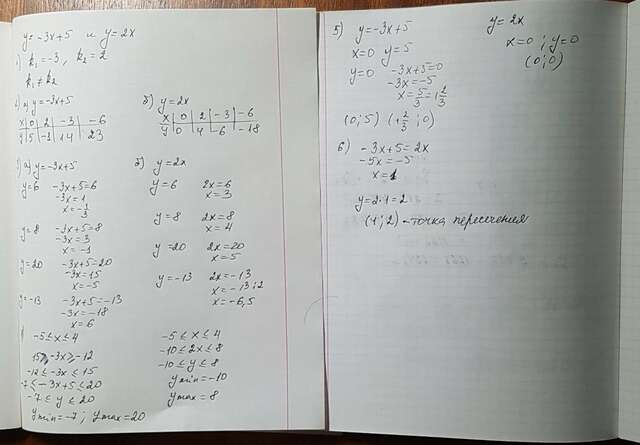 y=-3x+5 и y=2x
1) k₁=-3, k₂=2
k₁≠k₂
2) а) y=-3x+5
x | 0 | 2 | -3 | -6
y | 5 | -1 | 14 | 23
б) y=2x
x | 0 | 2 | -3 | -6
y | 0 | 4 | -6 | -18
3) а) y=-3x+5
y=6 -3x+5=6
-3x=1
x=-1/3
y=8 -3x+5=8
-3x=3
x=-1
y=20 -3x+5=20
-3x=15
x=-5
y=-13 -3x+5=-13
-3x=-18
x=6
б) y=2x
y=6 2x=6
x=3
y=8 2x=8
x=4
y=20 2x=20
x=5
y=-13 2x=-13
x=-13:2
x=-6,5
-5≤x≤4
15≥-3x≥-12
-12≤-3x≤15
-7≤-3x+5≤20
-7≤y≤20
y min=-7; y max=20
-5≤x≤4
-10≤2x≤8
-10≤y≤8
y min=-10
y max=8
5) y=-3x+5
x=0 y=5
y=0 -3x+5=0
-3x=-5
x=5/3=1 2/3
(0;5) (1 2/3;0)
y=2x
x=0; y=0
(0;0)
6) -3x+5=2x
-5x=-5
x=1
y=2·1=2
(1;2) -точка пересечения